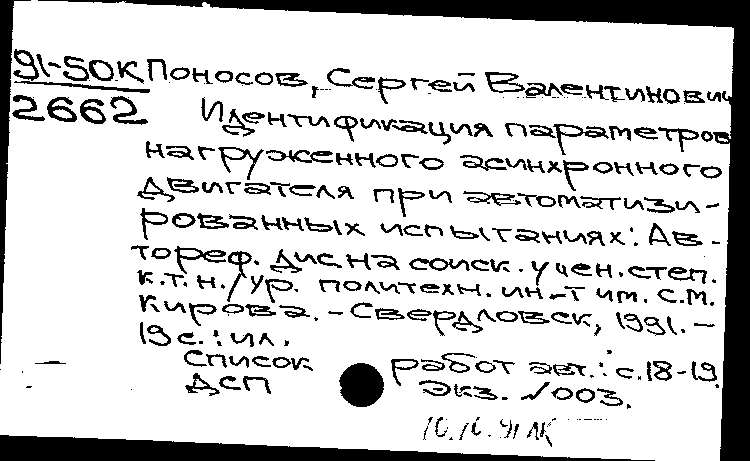 91-50К Поносов, Сергей Валентинович
2662 Идентификация параметров
нагруженного асинхронного
двигателя при автоматизи-
рованных испытаниях: Ав-
тореф. дис на соиск. учен. степ.
к.т.н./ Ур. политехн. ин-т им. С.М.
Кирова. - Свердловск, 1991. -
19 с. : ил.
Список работ авт.: с.18-19
ДСП Экз. №003.
10.10.91 ЛК